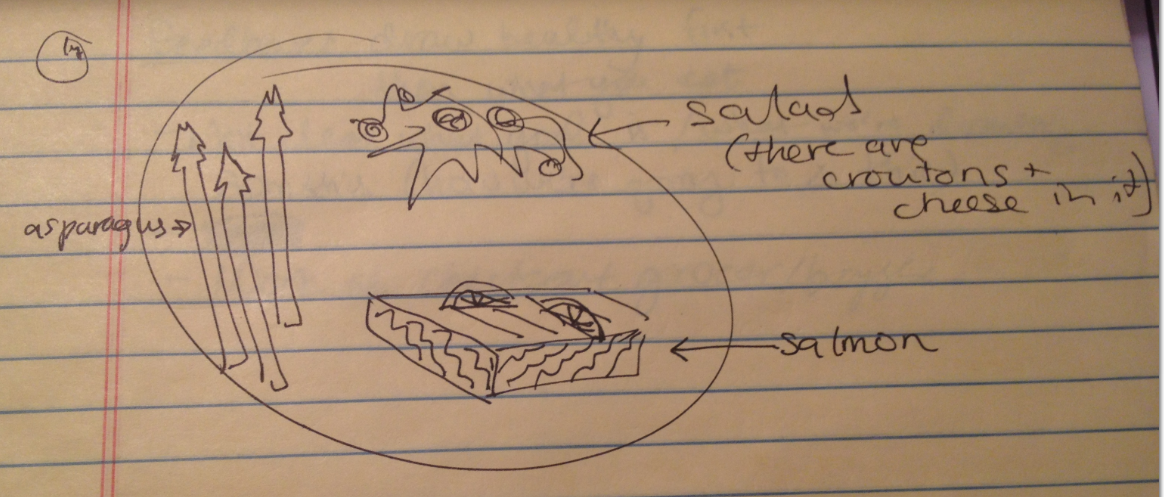 salad
(there are
croutons +
cheese in it)
asparagus
salmon